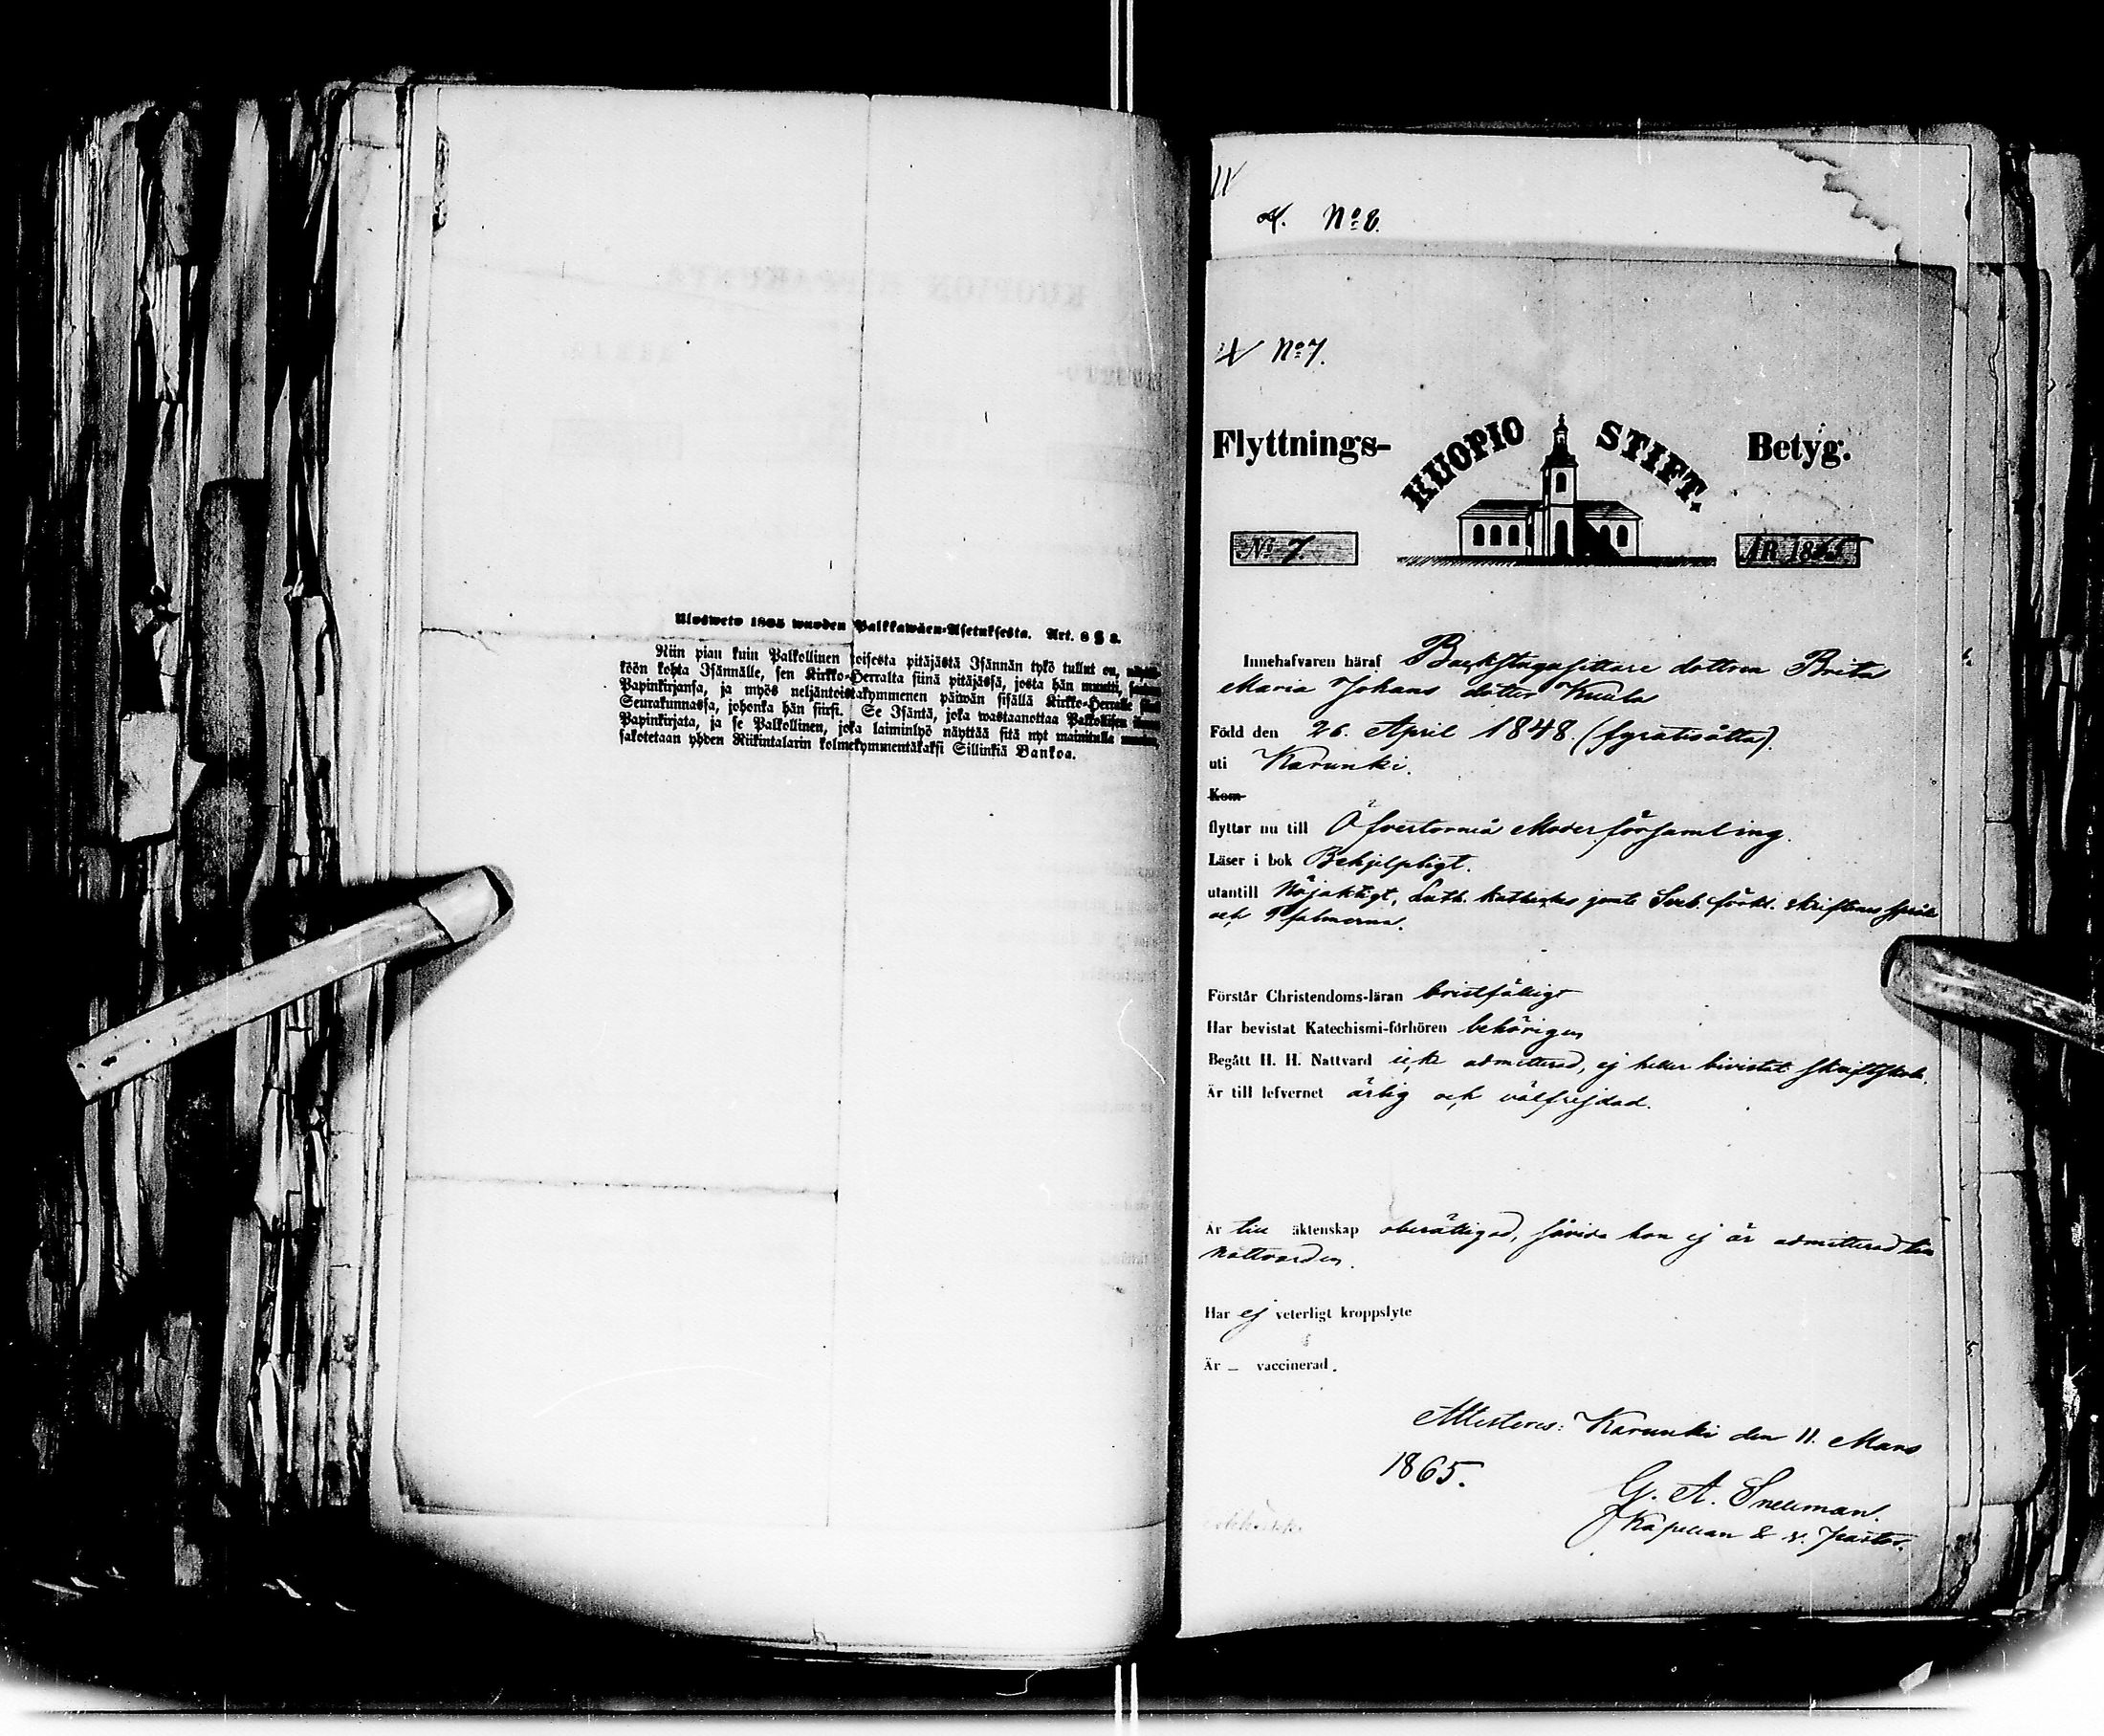 Ulosweto 1805 wuoden Palkkawäen-Asetuksesta. Art. 8 § 3.
Niin pian kuin Palkollinen toisesta pitäjästä Isännän tykö tullut on,
köön kohta Isännälle, sen Kirkko-Herralta siinä pitäjässä, josta hän muutti,
Papinkirjansa, ja myös neljäntoistakymmenen päiwän sisällä Kirkko-Herralle
Seurakunnassa, johonka hän siirsi. Se Isäntä, joka wastaanottaa Palkollisen
Papinkirjata, ja se Palkollinen, joka laiminlyö näyttää sitä nyt mainitulla
sakotetaan yhden Riikintalarin kolmekymmentäkaksi Sillinkiä Bankoa.
No 8.
No 7.
Flyttnings- KUOPIO STIFT. Betyg.
No 7. ÅR 1865
Innehafvaren häraf Backstugusittare dottren Brita
Maria Johans dotter Kuula
Född den 26. April 1848. (fyratioåtta).
uti Karunki.
Kom
flyttar nu till Öfvertorneå Moderförsamling.
Läser i bok Behjelpligt.
utantill Nöjaktigt, Luth. Kateches jemte Sveb. förkl. skriftenes språk
och Psalmerna.
Förstår Christendoms-läran bristfälligt
Har bevistat Katechismi-förhören behörigen
Begått H. H. Nattvard icke admitterad, ej heller bivistat skriftskola.
Är till lefvernet ärlig och välfrejdad.
Är till äktenskap oberättigad, såvida hon ej är admitterad till
Nattvarden.
Har ej veterligt kroppslyte
Är – vaccinerad.
Attesteres: Karunki den 11. Mars
1865.
G. A. Snellman.
Kapellan & v. Pastor.